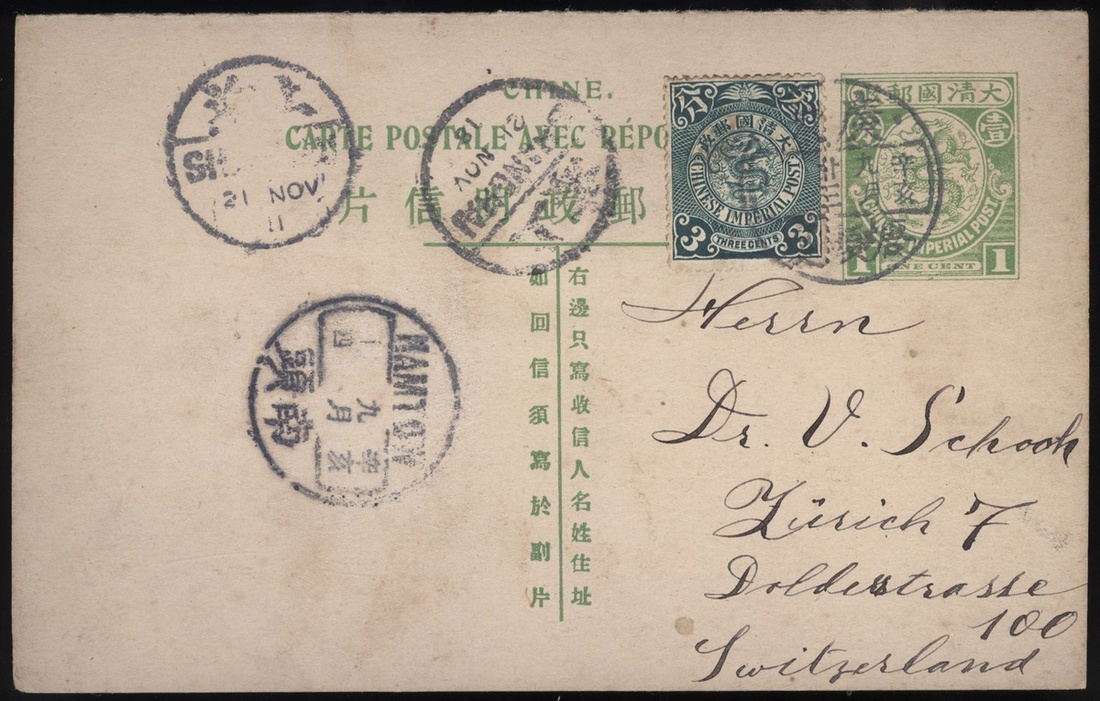 CHINE.
CARTE POSTALE AVEC RÉPO
片信明政郵
右邊只寫收信人名姓住址
如回信須寫於副片
大清國郵政
壹
CHINESE IMPERIAL POST
1 ONE CENT 1
分 叁
大清國郵政
CHINESE IMPERIAL POST
3 THREE CENTS 3
21 NOV
11
21 NOV
11
NAMTOW
南頭
辛亥
九月
十四
Herrn
Dr. V. Schoch
Zürich 7
Dolderstrasse
100
Switzerland